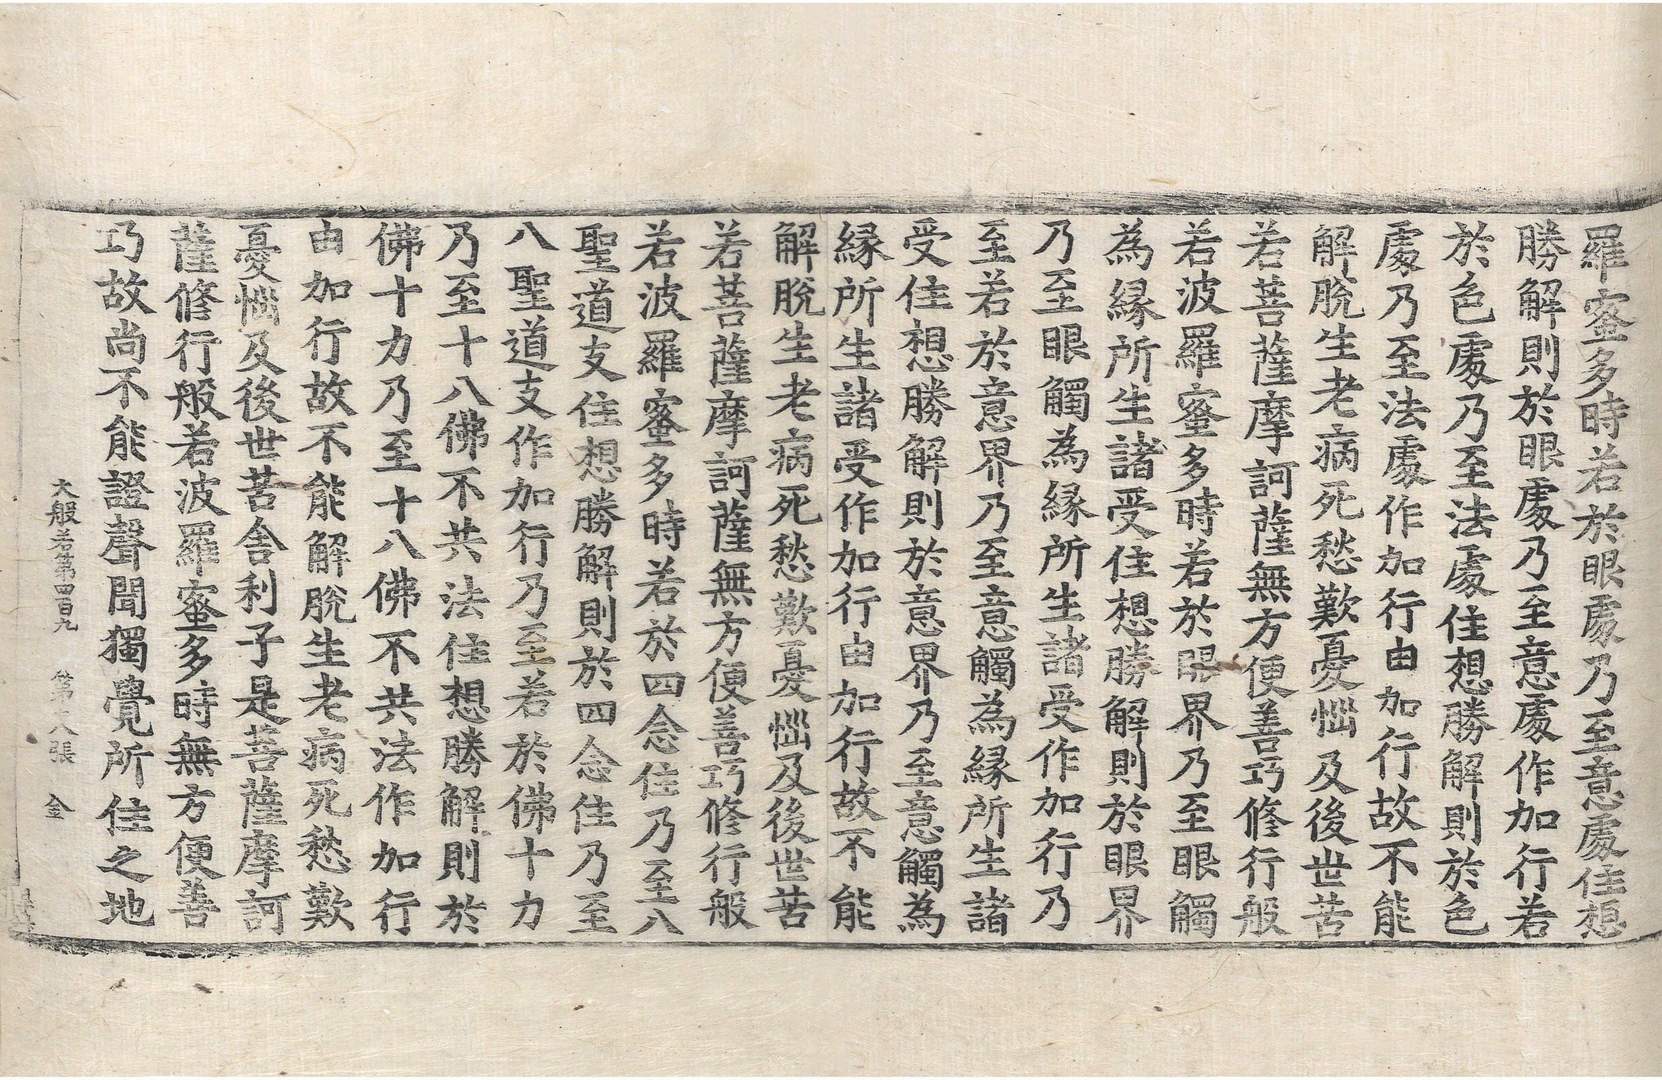 羅蜜多時若於眼處乃至意處住想
勝解則於眼處乃至意處作加行若
於色處乃至法處住想勝解則於色
處乃至法處作加行由加行故不能
解脫生老病死愁歎憂惱及後世苦
若菩薩摩訶薩無方便善巧修行般
若波羅蜜多時若於眼界乃至眼觸
為緣所生諸受住想勝解則於眼界
乃至眼觸為緣所生諸受作加行乃
至若於意界乃至意觸為緣所生諸
受住想勝解則於意界乃至意觸為
緣所生諸受作加行由加行故不能
解脫生老病死愁歎憂惱及後世苦
若菩薩摩訶薩無方便善巧修行般
若波羅蜜多時若於四念住乃至八
聖道支住想勝解則於四念住乃至
八聖道支作加行乃至若於佛十力
乃至十八佛不共法住想勝解則於
佛十力乃至十八佛不共法作加行
由加行故不能解脫生老病死愁歎
憂惱及後世苦舍利子是菩薩摩訶
薩修行般若波羅蜜多時無方便善
巧故尚不能證聲聞獨覺所住之地
大般若第四百九 第 八張 金